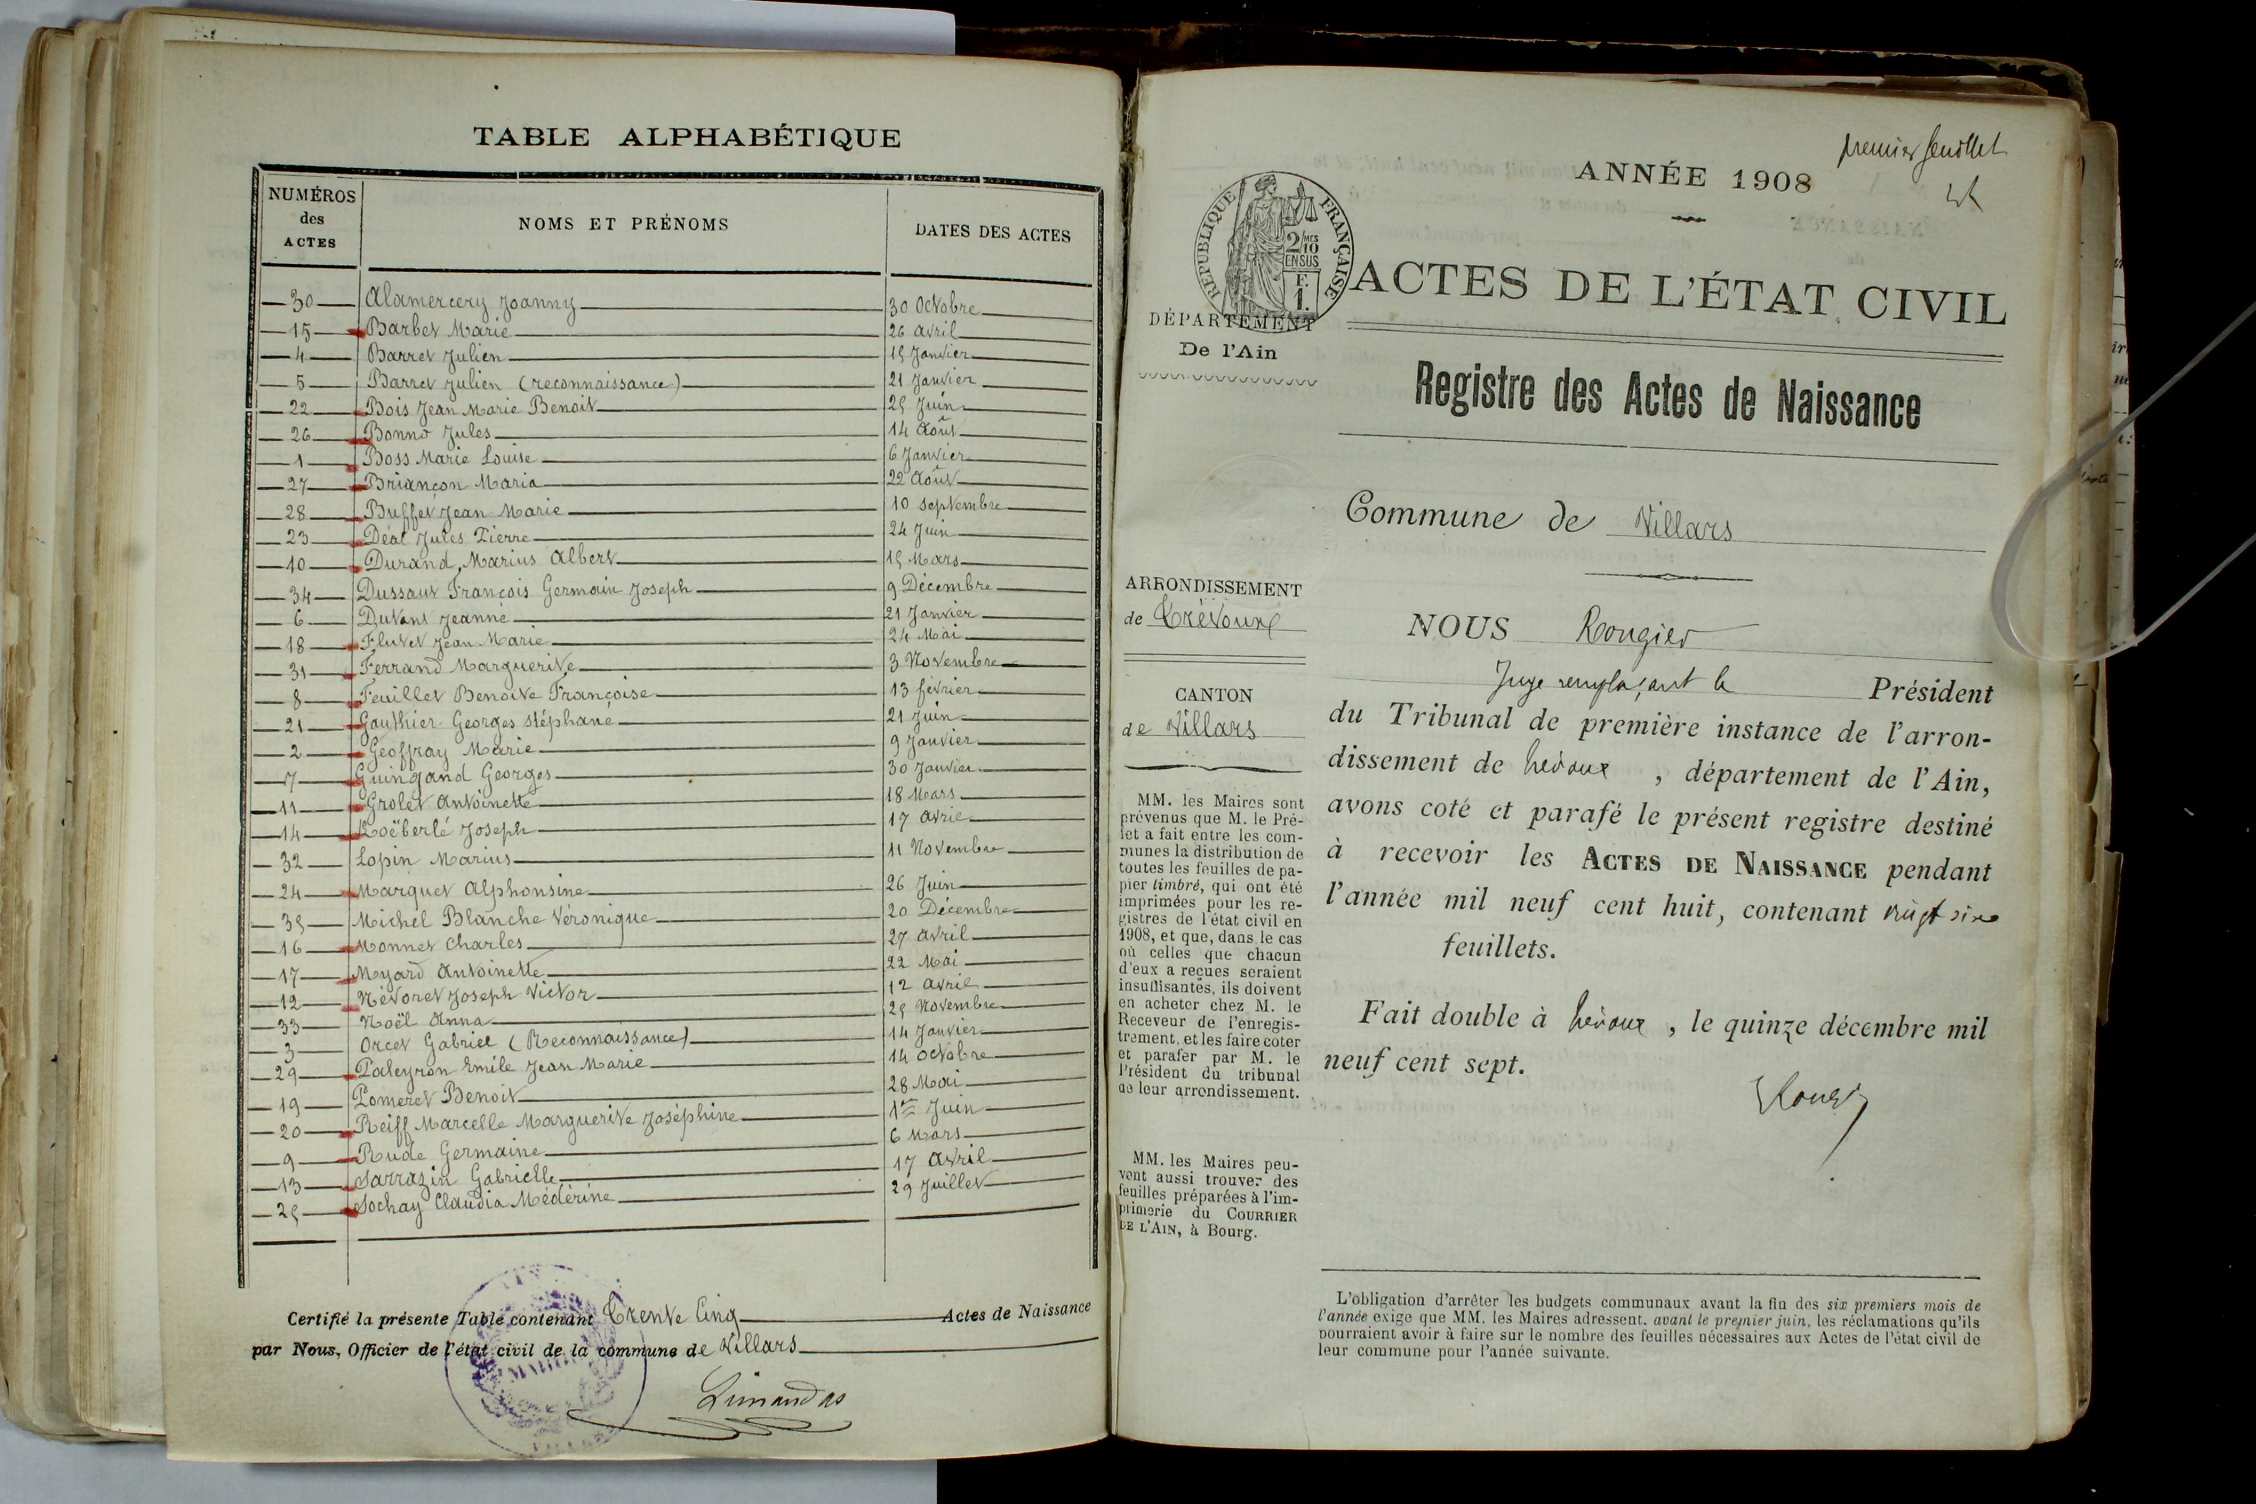 TABLE ALPHABÉTIQUE
NUMÉROS des ACTES NOMS ET PRÉNOMS DATES DES ACTES
30 Alamercery Joanny 30 Octobre
15 Barbet Marie 26 avril
4 Barret Julien 15 Janvier
5 Barret Julien (reconnaissance) 21 Janvier
22 Bois Jean Marie Benoit 25 Juin
26 Bonno Jules 14 Août
1 Boss Marie Louise 6 Janvier
27 Briançon Maria 22 Août
28 Buffet Jean Marie 10 Septembre
23 Déal Jules Pierre 24 Juin
10 Durand, Marius Albert 15 Mars
34 Dussaut François Germain Joseph 9 Décembre
6 Dutant Jeanne 21 Janvier
18 Flutet Jean Marie 24 Mai
31 Ferrand Marguerite 3 Novembre
8 Feuillet Benoite Françoise 13 février
21 Gauthier Georges Stéphane 21 Juin
2 Geoffray Marie 9 Janvier
7 Guingand Georges 30 Janvier
11 Grolet Antoinette 18 Mars
14 Koëberlé Joseph 17 Avril
32 Lopin Marius 11 Novembre
24 Marquet Alphonsine 26 Juin
35 Michel Blanche Véronique 20 Décembre
16 Monnet Charles 27 Avril
17 Myard Antoinette 22 Mai
12 Névoret Joseph Victor 12 Avril
33 Noël Anna 25 Novembre
3 Orcet Gabriel (Reconnaissance) 14 Janvier
29 Paleyron Emile Jean Marie 14 Octobre
19 Pomeret Benoit 28 Mai
20 Reiff Marcelle Marguerite Joséphine 1er Juin
9 Rude Germaine 6 Mars
13 Sarrazin Gabrielle 17 Avril
25 Sochay Claudia Médérine 29 Juillet
Certifié la présente Table contenant Trente Cinq Actes de Naissance
par Nous, Officier de l'état civil de la commune de Villars
MAIRIE
Limandas
premier feuillet
ANNÉE 1908
RÉPUBLIQUE FRANÇAISE
2/10MES
EN SUS
F.
1.
ACTES DE L'ÉTAT CIVIL
DÉPARTEMENT
De l'Ain
Registre des Actes de Naissance
Commune de Villars
ARRONDISSEMENT
de Trévoux
CANTON
de Villars
MM. les Maires sont
prévenus que M. le Pré-
fet a fait entre les com-
munes la distribution de
toutes les feuilles de pa-
pier timbré, qui ont été
imprimées pour les re-
gistres de l'état civil en
1908, et que, dans le cas
où celles que chacun
d'eux a reçues seraient
insuffisantes, ils doivent
en acheter chez M. le
Receveur de l'enregis-
trement, et les faire coter
et parafer par M. le
Président du tribunal
de leur arrondissement.
MM. les Maires peu-
vent aussi trouver des
feuilles préparées à l'im-
primerie du COURRIER
DE L'AIN, à Bourg.
NOUS Rougier
Juge remplaçant le Président
du Tribunal de première instance de l'arron-
dissement de Trévoux, département de l'Ain,
avons coté et parafé le présent registre destiné
à recevoir les ACTES DE NAISSANCE pendant
l'année mil neuf cent huit, contenant vingt six
feuillets.
Fait double à Trévoux, le quinze décembre mil
neuf cent sept.
L'obligation d'arrêter les budgets communaux avant la fin des six premiers mois de
l'année exige que MM. les Maires adressent, avant le premier juin, les réclamations qu'ils
pourraient avoir à faire sur le nombre des feuilles nécessaires aux Actes de l'état civil de
leur commune pour l'année suivante.